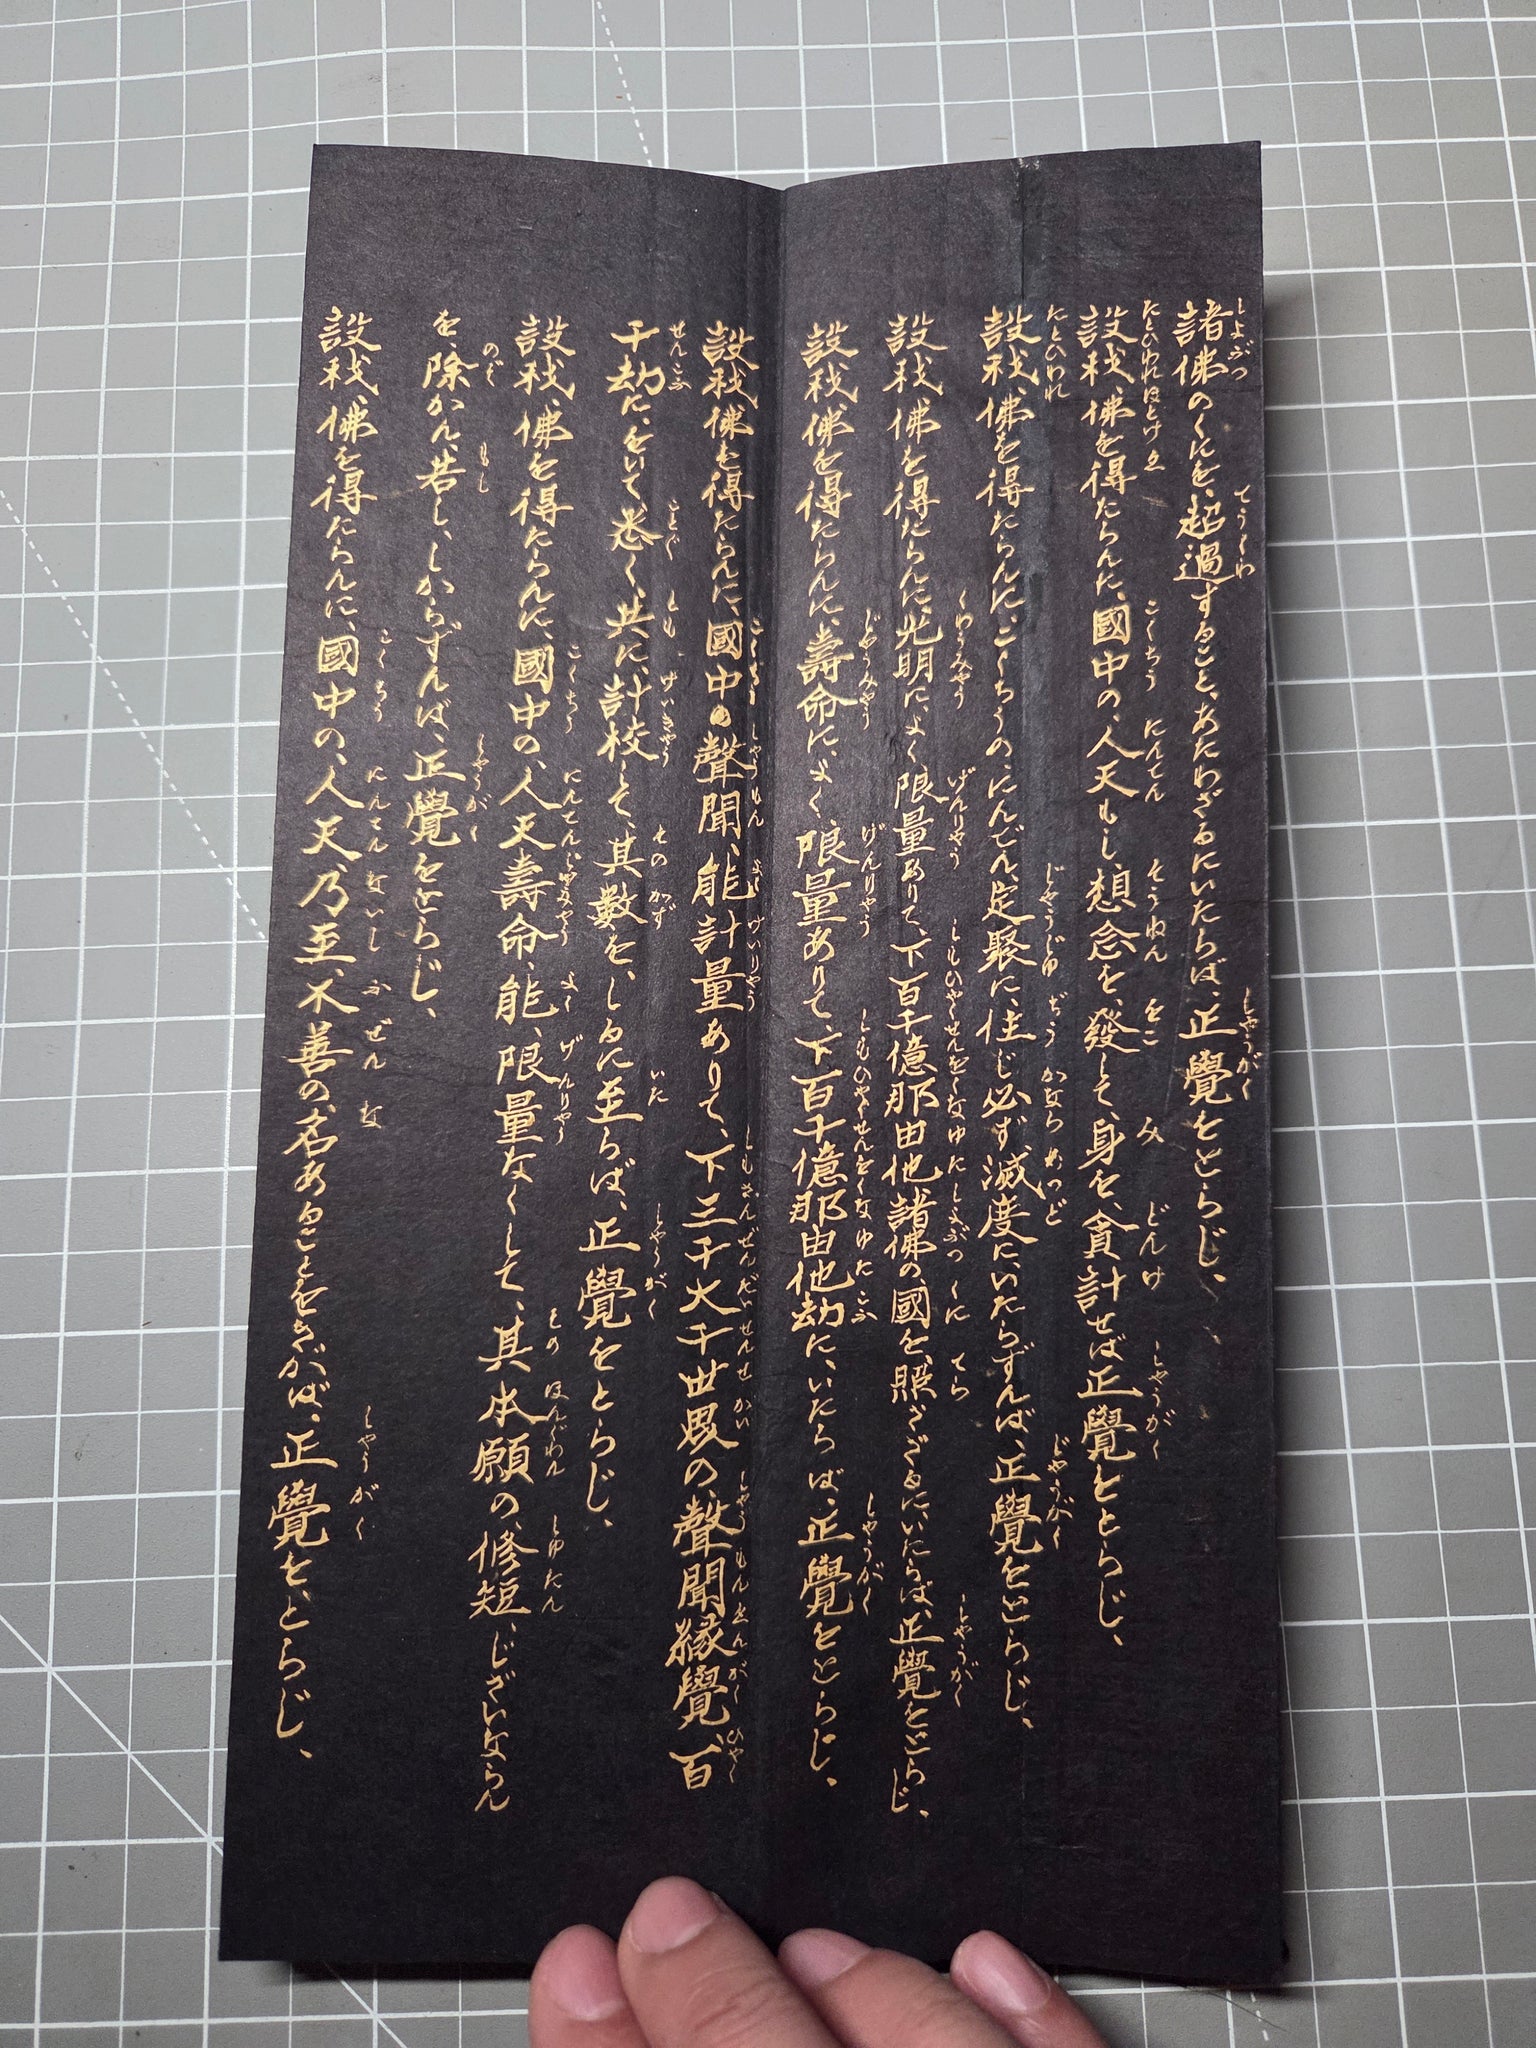 諸佛のくにを、超過すること、あたわざるにいたらば、正覺をとらじ、
設我、佛を得たらんに、國中の、人天もし、想念を、發して、身を、貪計せば正覺をとらじ、
設我、佛を得たらんに、こくちうの、にんでん、定聚に、住じ必ず滅度に、いたらずんば、正覺をとらじ、
設我、佛を得たらんに、光明に、よく限量ありて、下百千億那由他諸佛の、國を、照ざるに、いたらば、正覺をとらじ、
設我、佛を得たらんに、壽命に、よく、限量ありて、下百千億那由他劫に、いたらば、正覺をとらじ、
設我、佛を得たらんに、國中の聲聞、能計量ありて、下三千大千世界の、聲聞緣覺、百
千劫に、をいて悉く、共に、計校して、其數を、しるに至らば、正覺をとらじ、
設我、佛を得たらんに、國中の、人天壽命、能、限量なくして、其本願の、修短、じざいならん
を、除かん、若し、しからずんば、正覺をとらじ、
設我、佛を得たらんに、國中の、人天、乃至、不善の名あることをきかば、正覺を、とらじ、